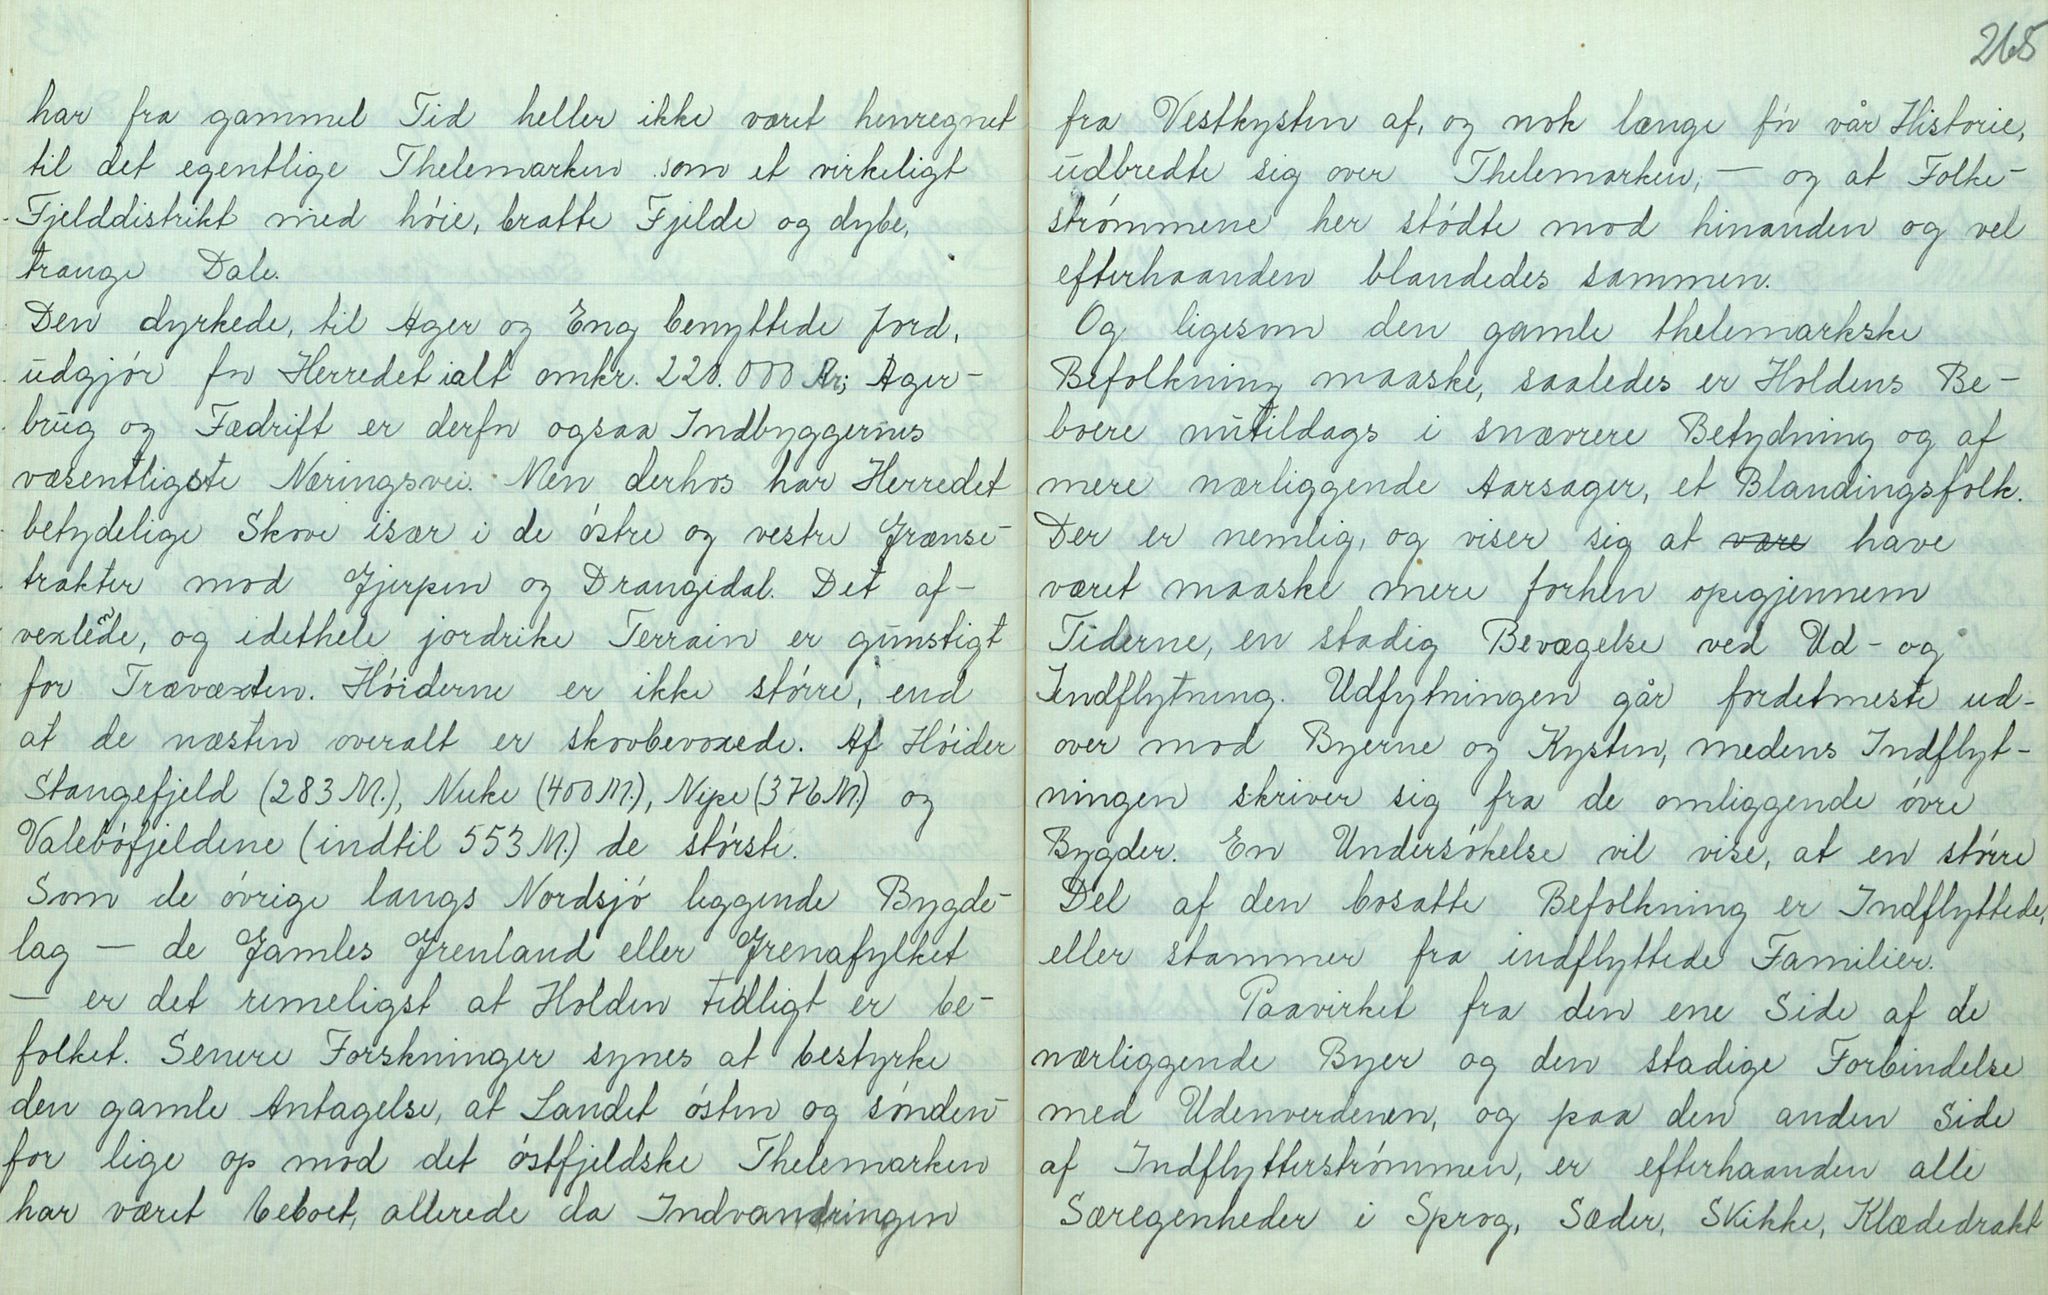 har fra gammel Tid heller ikke været henregnet
til det egentlige Thelemarken som et virkeligt
Fjelddistrikt med høie, bratte Fjelde og dybe,
trange Dale.
Den dyrkede, til Ager og Eng benyttede Jord,
udgjør for Herredet ialt omkr. 220.000 Ar; Ager-
brug og Fædrift er derfor ogsaa Indbyggernes
væsentligste Næringsvei. Men derhos har Herredet
betydelige Skove især i de østre og vestre Grænse-
trakter mod Gjerpen og Drangedal. Det af-
vexlende, og idethele jordrike Terrain er gunstigt
for Trævæxten. Høiderne er ikke større, end
at de næsten overalt er skovbevoxede. Af Høider
Stangefjeld (283 M.), Nuke (400 M.), Nipe (376 M.) og
Valebøfjeldene (indtil 553 M.) de største.
Som de øvrige langs Nordsjø liggende Bygde-
lag — de Gamles Grenland eller Grenafylket
— er det rimeligst at Holden tidligt er be-
folket. Senere Forskninger synes at bestyrke
den gamle Antagelse, at Landet østen og sønden-
for lige op mod det østfjeldske Thelemarken
har været beboet, allerede da Indvandringen
265
fra Vestkysten af, og nok længe før vår Historie,
udbredte sig over Thelemarken, — og at Folke-
strømmene her stødte mod hinanden og vel
efterhaanden blandedes sammen.
Og ligesom den gamle thelemarkske
Befolkning maaske, saaledes er Holdens Be-
boere nutildags i snævrere Betydning og af
mere nærliggende Aarsager, et Blandingsfolk.
Der er nemlig, og viser sig at være have
været maaske mere forhen opigjennem
Tiderne, en stadig Bevægelse ved Ud- og
Indflytning. Udfytningen går fordetmeste ud-
over mod Byerne og Kysten, medens Indflyt-
ningen skriver sig fra de omliggende øvre
Bygder. En Undersøkelse vil vise, at en større
Del af den bosatte Befolkning er Indflyttede,
eller stammer fra indflyttede Familier.
Paavirket fra den ene Side af de
nærliggende Byer og den stadige Forbindelse
med Udenverdenen, og paa den anden Side
af Indflytterstrømmen, er efterhaanden alle
Særegenheder i Sprog, Sæder, Skikke, Klædedrakt